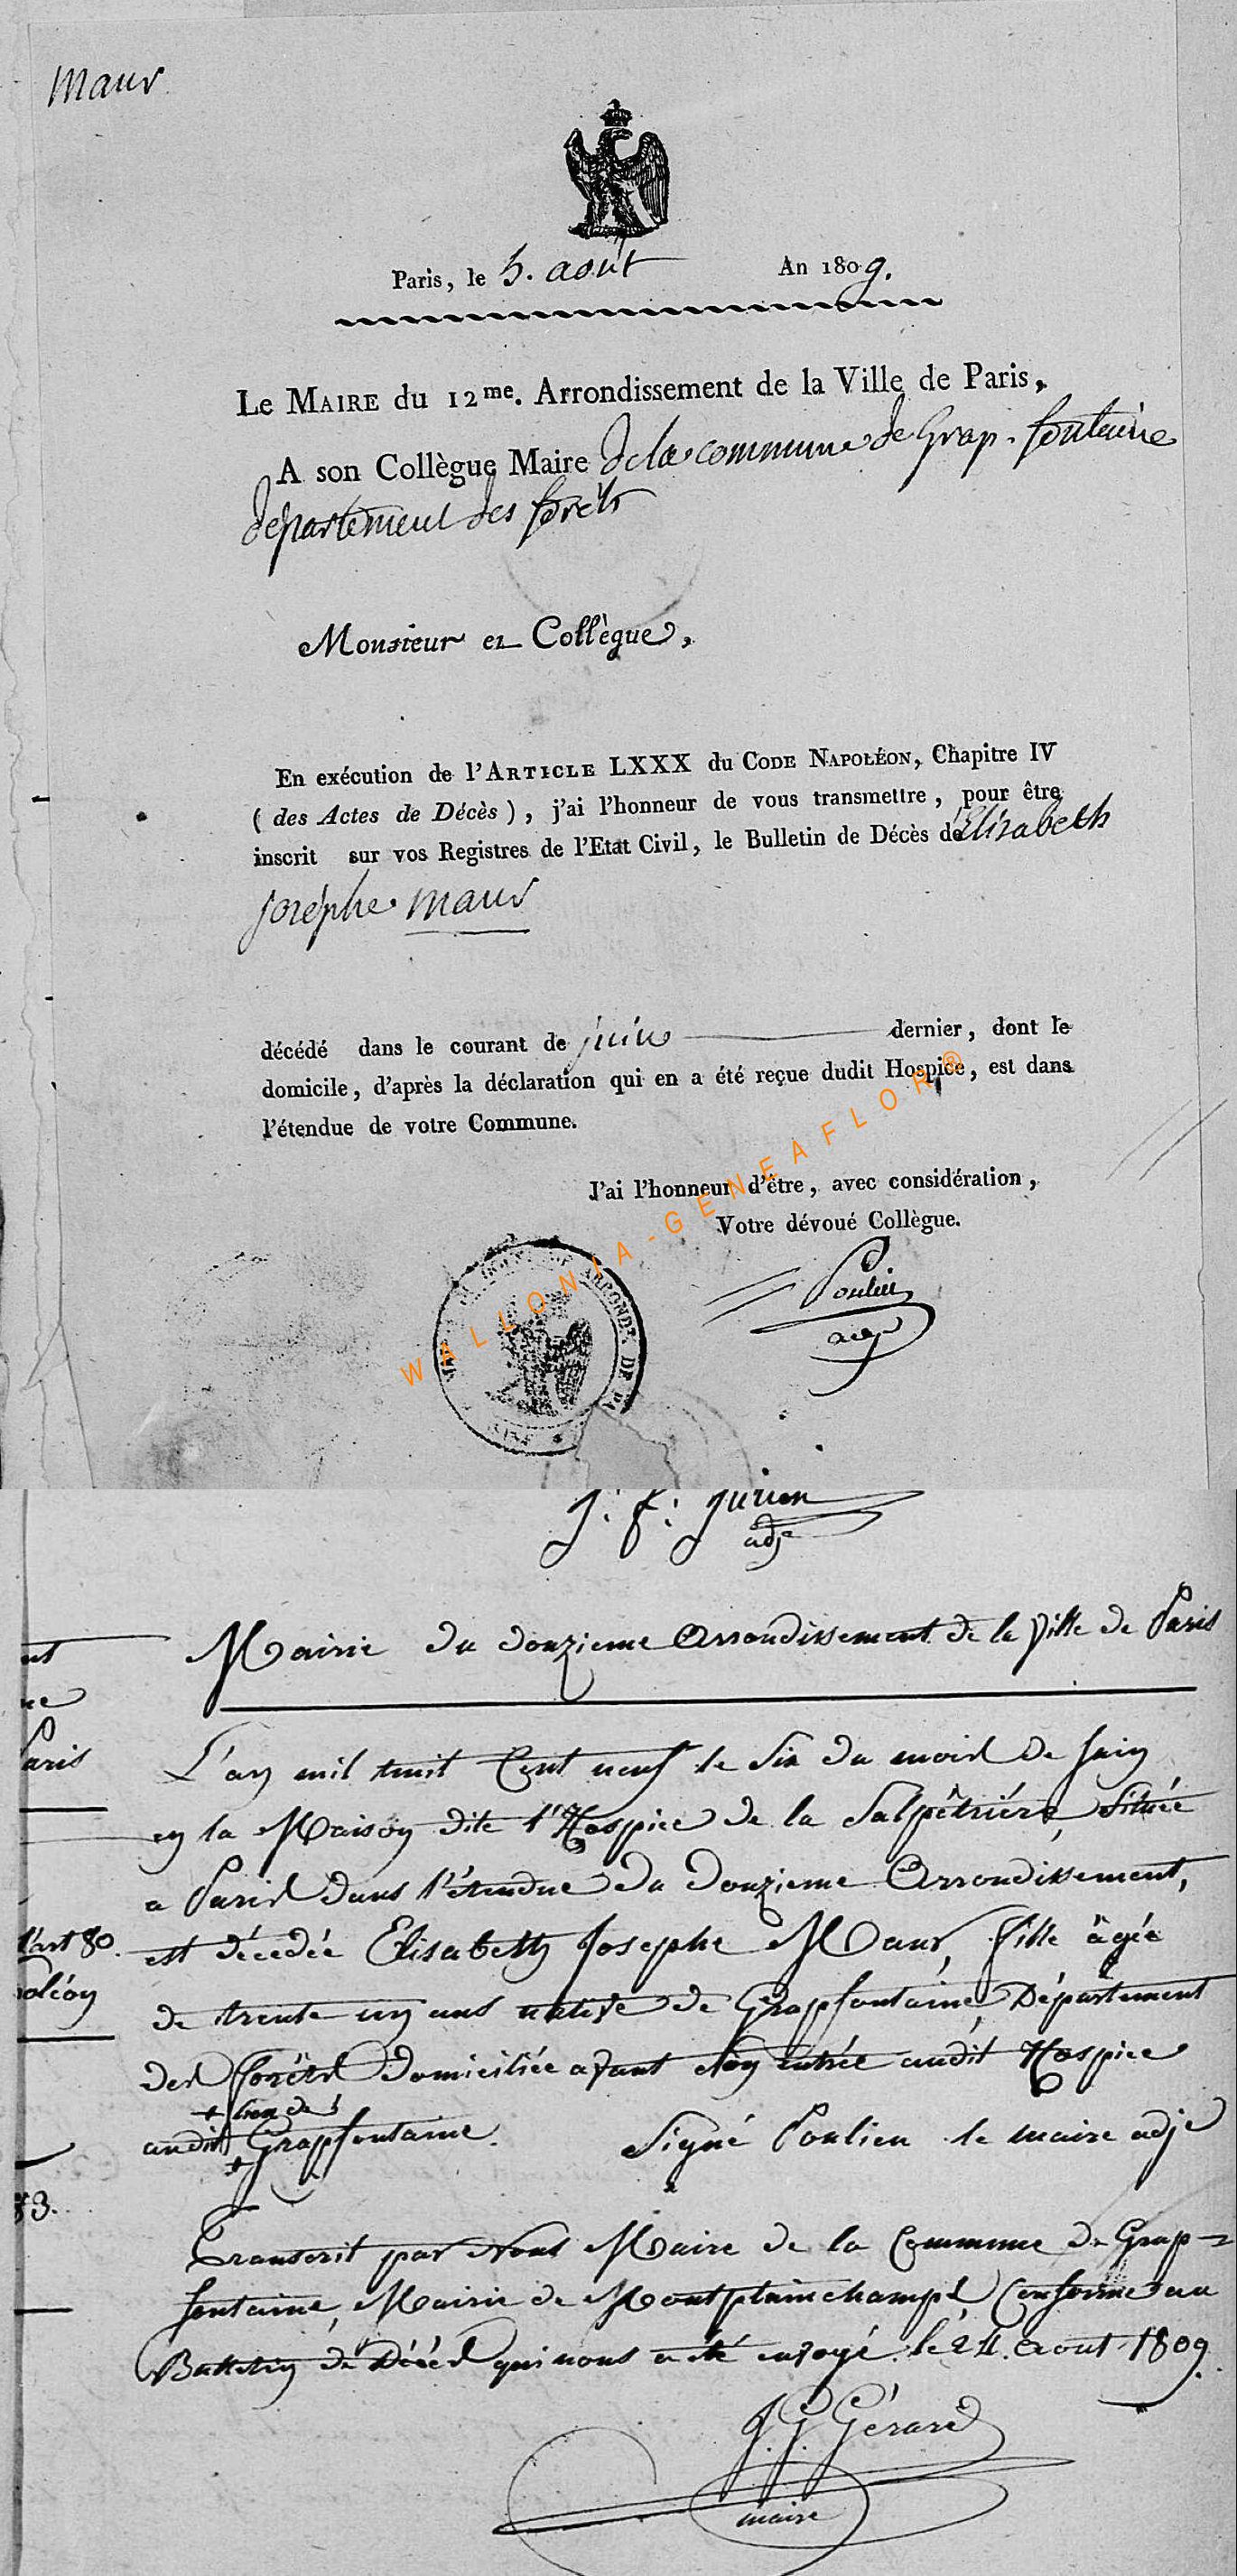 Maus
Paris, le 5. août An 1809.
Le Maire du 12me. Arrondissement de la Ville de Paris,
A son Collègue Maire de la commune de Grap-fontaine
département des forêts
Monsieur et Collègue,
En exécution de l'Article LXXX du Code Napoléon, Chapitre IV
(des Actes de Décès), j'ai l'honneur de vous transmettre, pour être
inscrit sur vos Registres de l'Etat Civil, le Bulletin de Décès de Elisabeth
josephe Maus
décédé dans le courant de juin dernier, dont le
domicile, d'après la déclaration qui en a été reçue dudit Hospice, est dans
l'étendue de votre Commune.
J'ai l'honneur d'être, avec considération,
Votre dévoué Collègue.
WALLONIA-GENEAFLOR®
ARRONDT. DE PA
Poulien
adj
J. F. Jurion
adje
Mairie du douzieme Arrondissement de la Ville de Paris
L'an mil huit Cent neuf le Six du mois de Juin
en la Maison dite l'Hospice de la Salpêtrière, Située
a Paris dans l'étendue du Douzieme Arrondissement,
est décedée Elisabeth Josephe Maus, fille âgée
de trente un ans native de Grapfontaine, Département
des forêts domiciliée avant son entrée audit Hospice
+ lieu de
audit Grapfontaine. Signé Poulien le maire adje
Transcrit par Nous Maire de la Commune de Grap=
fontaine, Mairie de Montplainchamps, Conforme au
Bulletin de Décès qui nous a été envoyé le 24. Aout 1809.
J. G. Gérard
maire
nt
ne
Paris
l'art 80.
oléon
83.